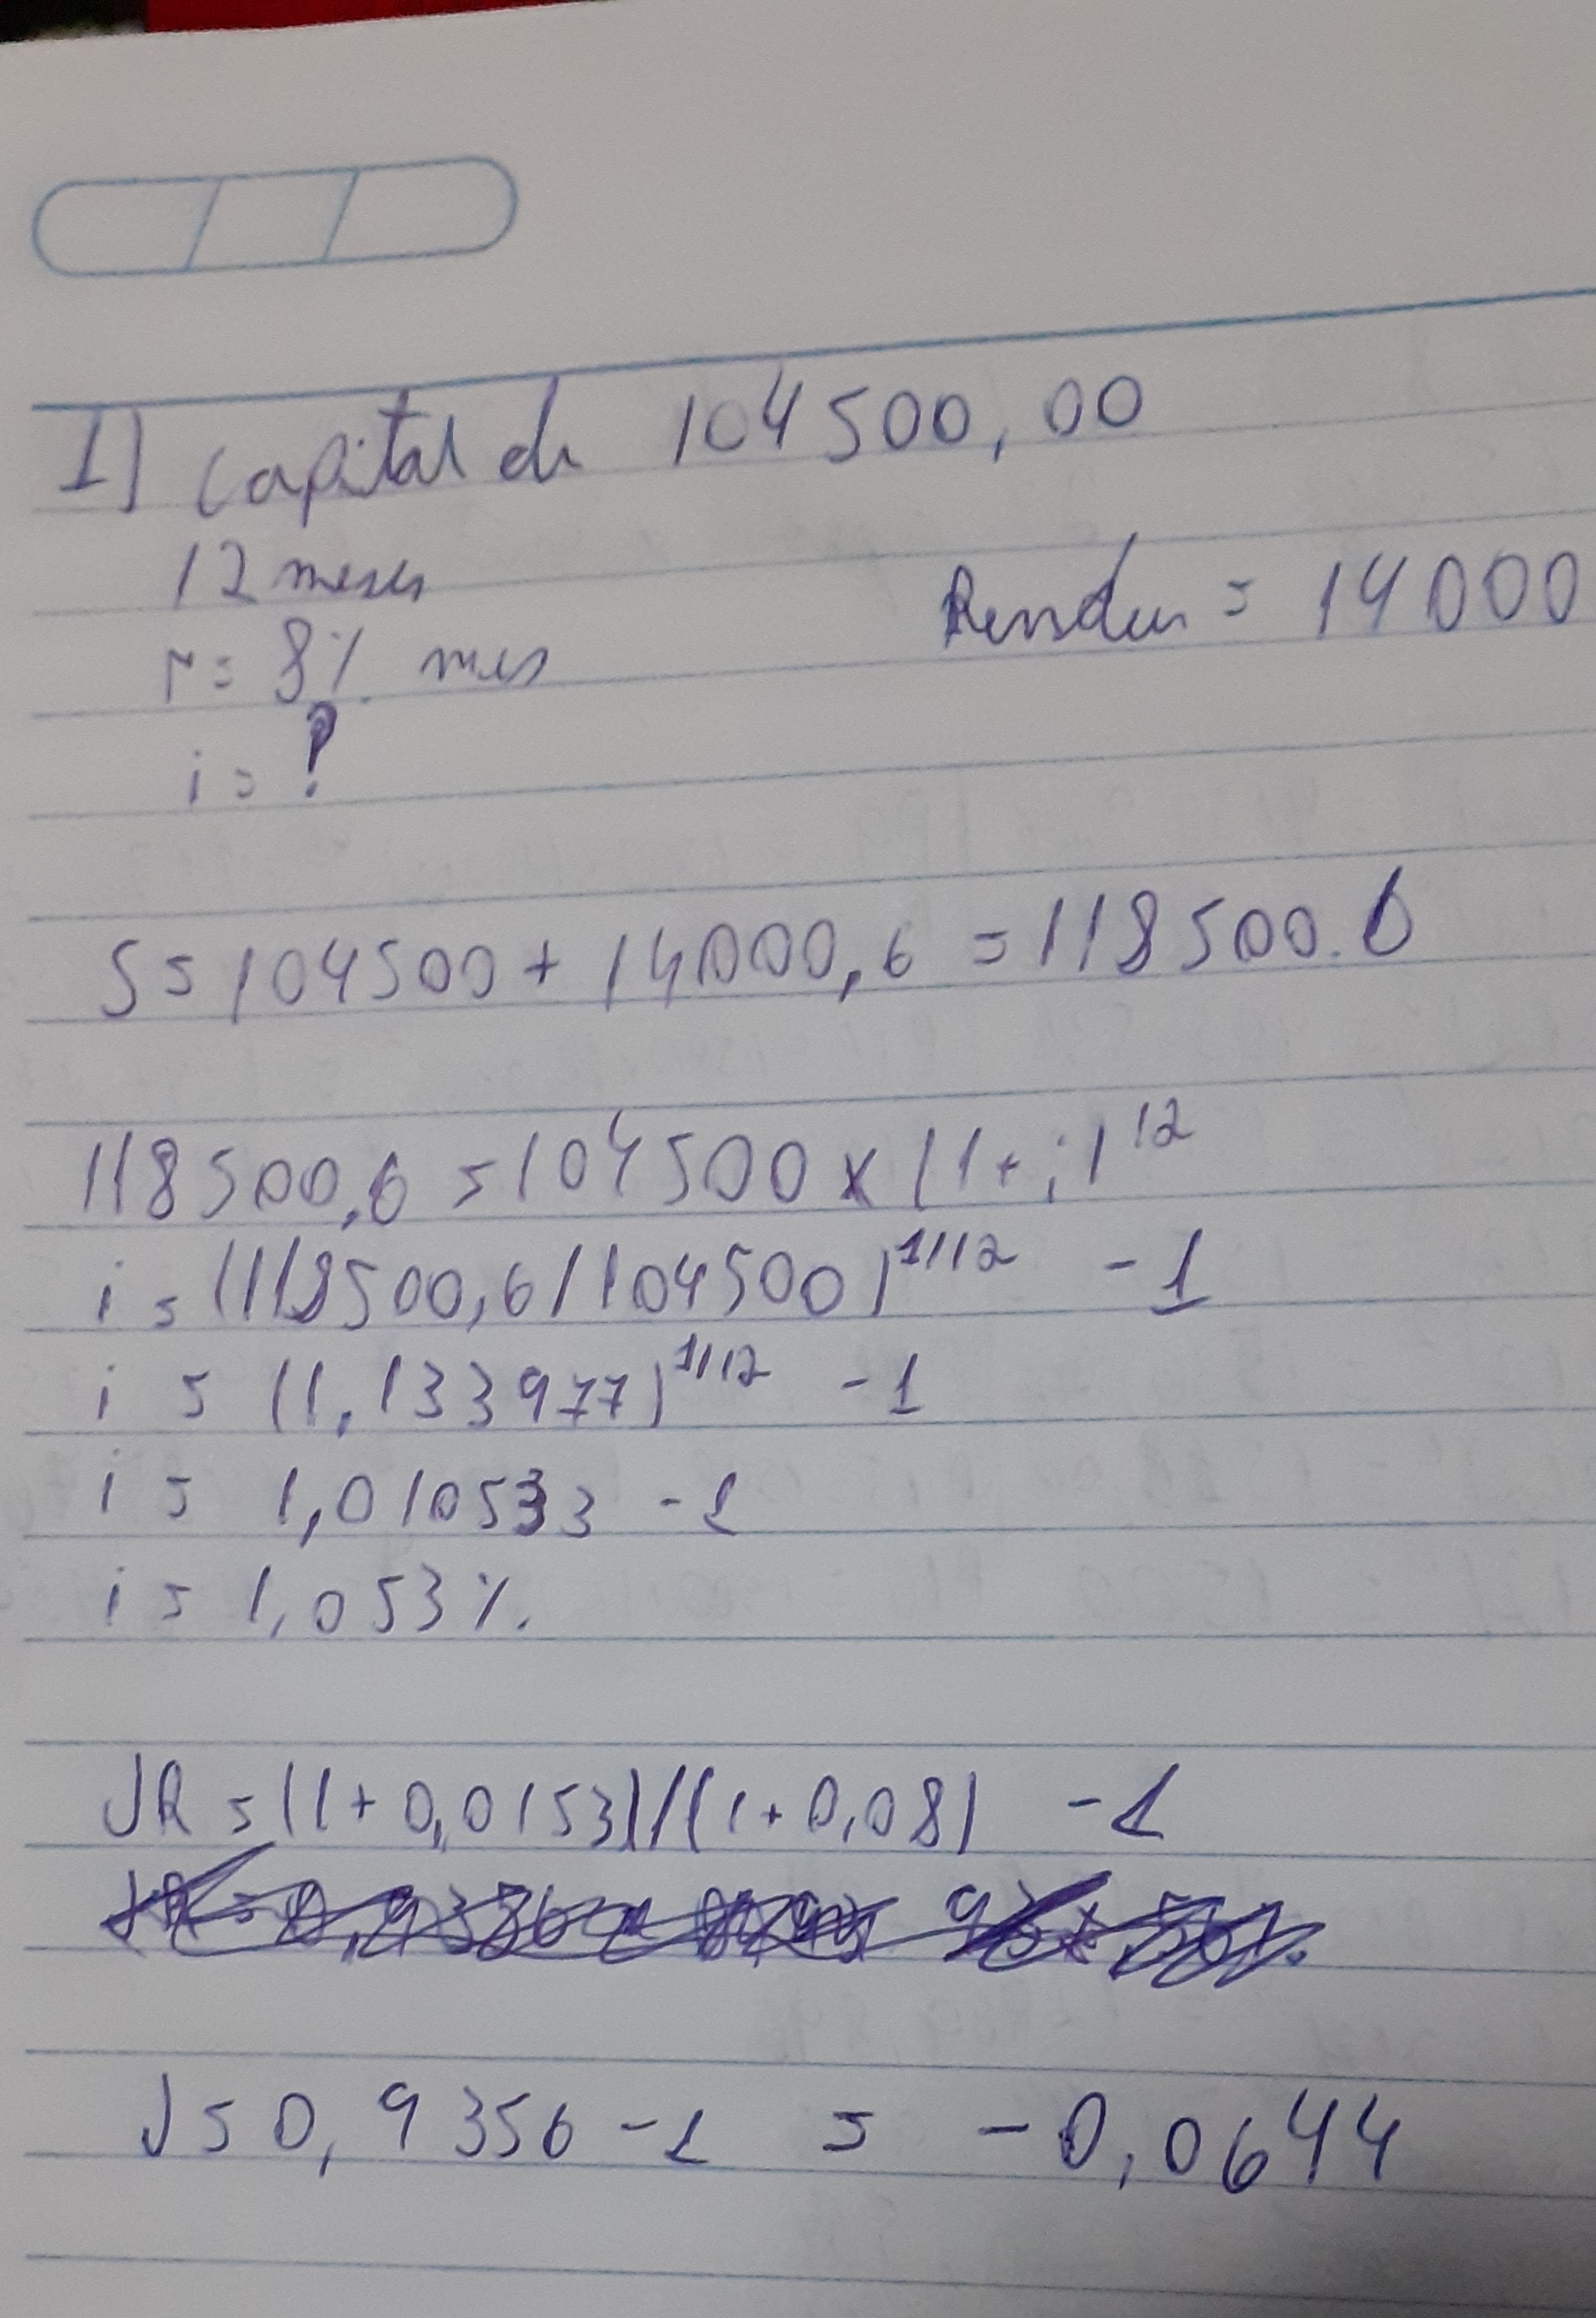 1) Capital de 104500,00
12 meses
Rendeu = 14000
r = 8% mes
i = ?
S = 104500 + 14000,6 = 118500.6
118500,6 = 104500 x (1+i)^12
i = (118500,6/104500)^1/12 - 1
i = (1,133977)^1/12 - 1
i = 1,010533 - 1
i = 1,053%.
JR = (1+0,0153)/(1+0,08) - 1
J = 0,9356 - 1 = -0,0644